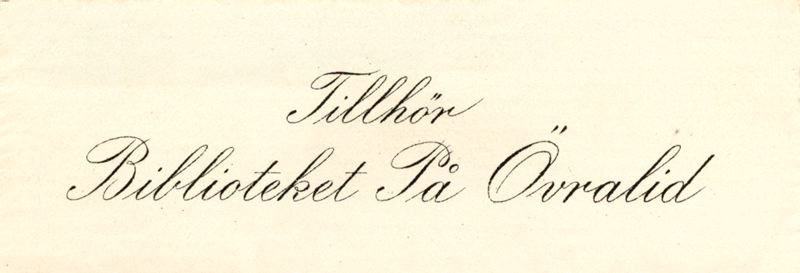 Tillhör
Biblioteket På Övralid